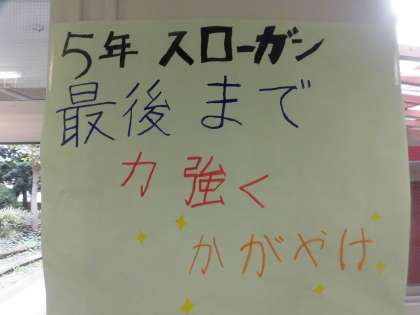 5年 スローガン
最後まで
力強く
かがやけ